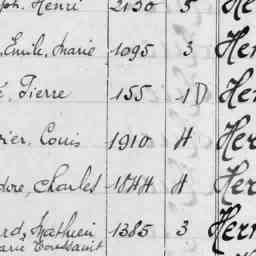 ph. Henri 2130 5 He
, Emile, Marie 1095 3 Her
, Pierre 155 1D Her
ier, Louis 1910 4 Her
dore, Charles 1844 4 Her
rd, Mathieu 1385 3 Herr
arie Toussaint